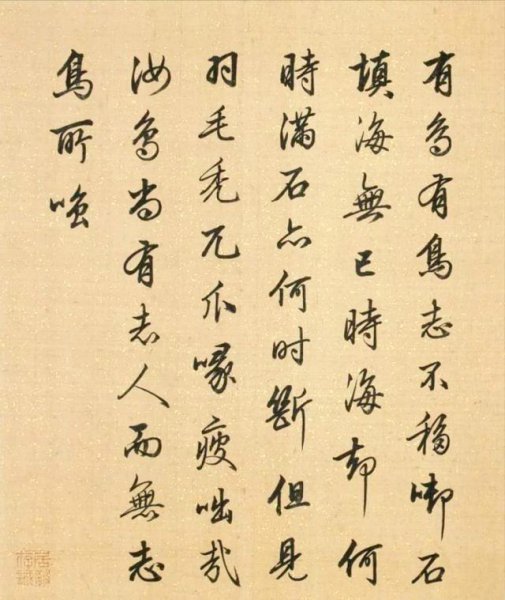 有鳥有鳥志不移啣石
填海無已時海却何
時滿石亦何时斷但見
羽毛禿兀爪喙瘦咄哉
汝鳥尚有志人而無志
鳥所嗤